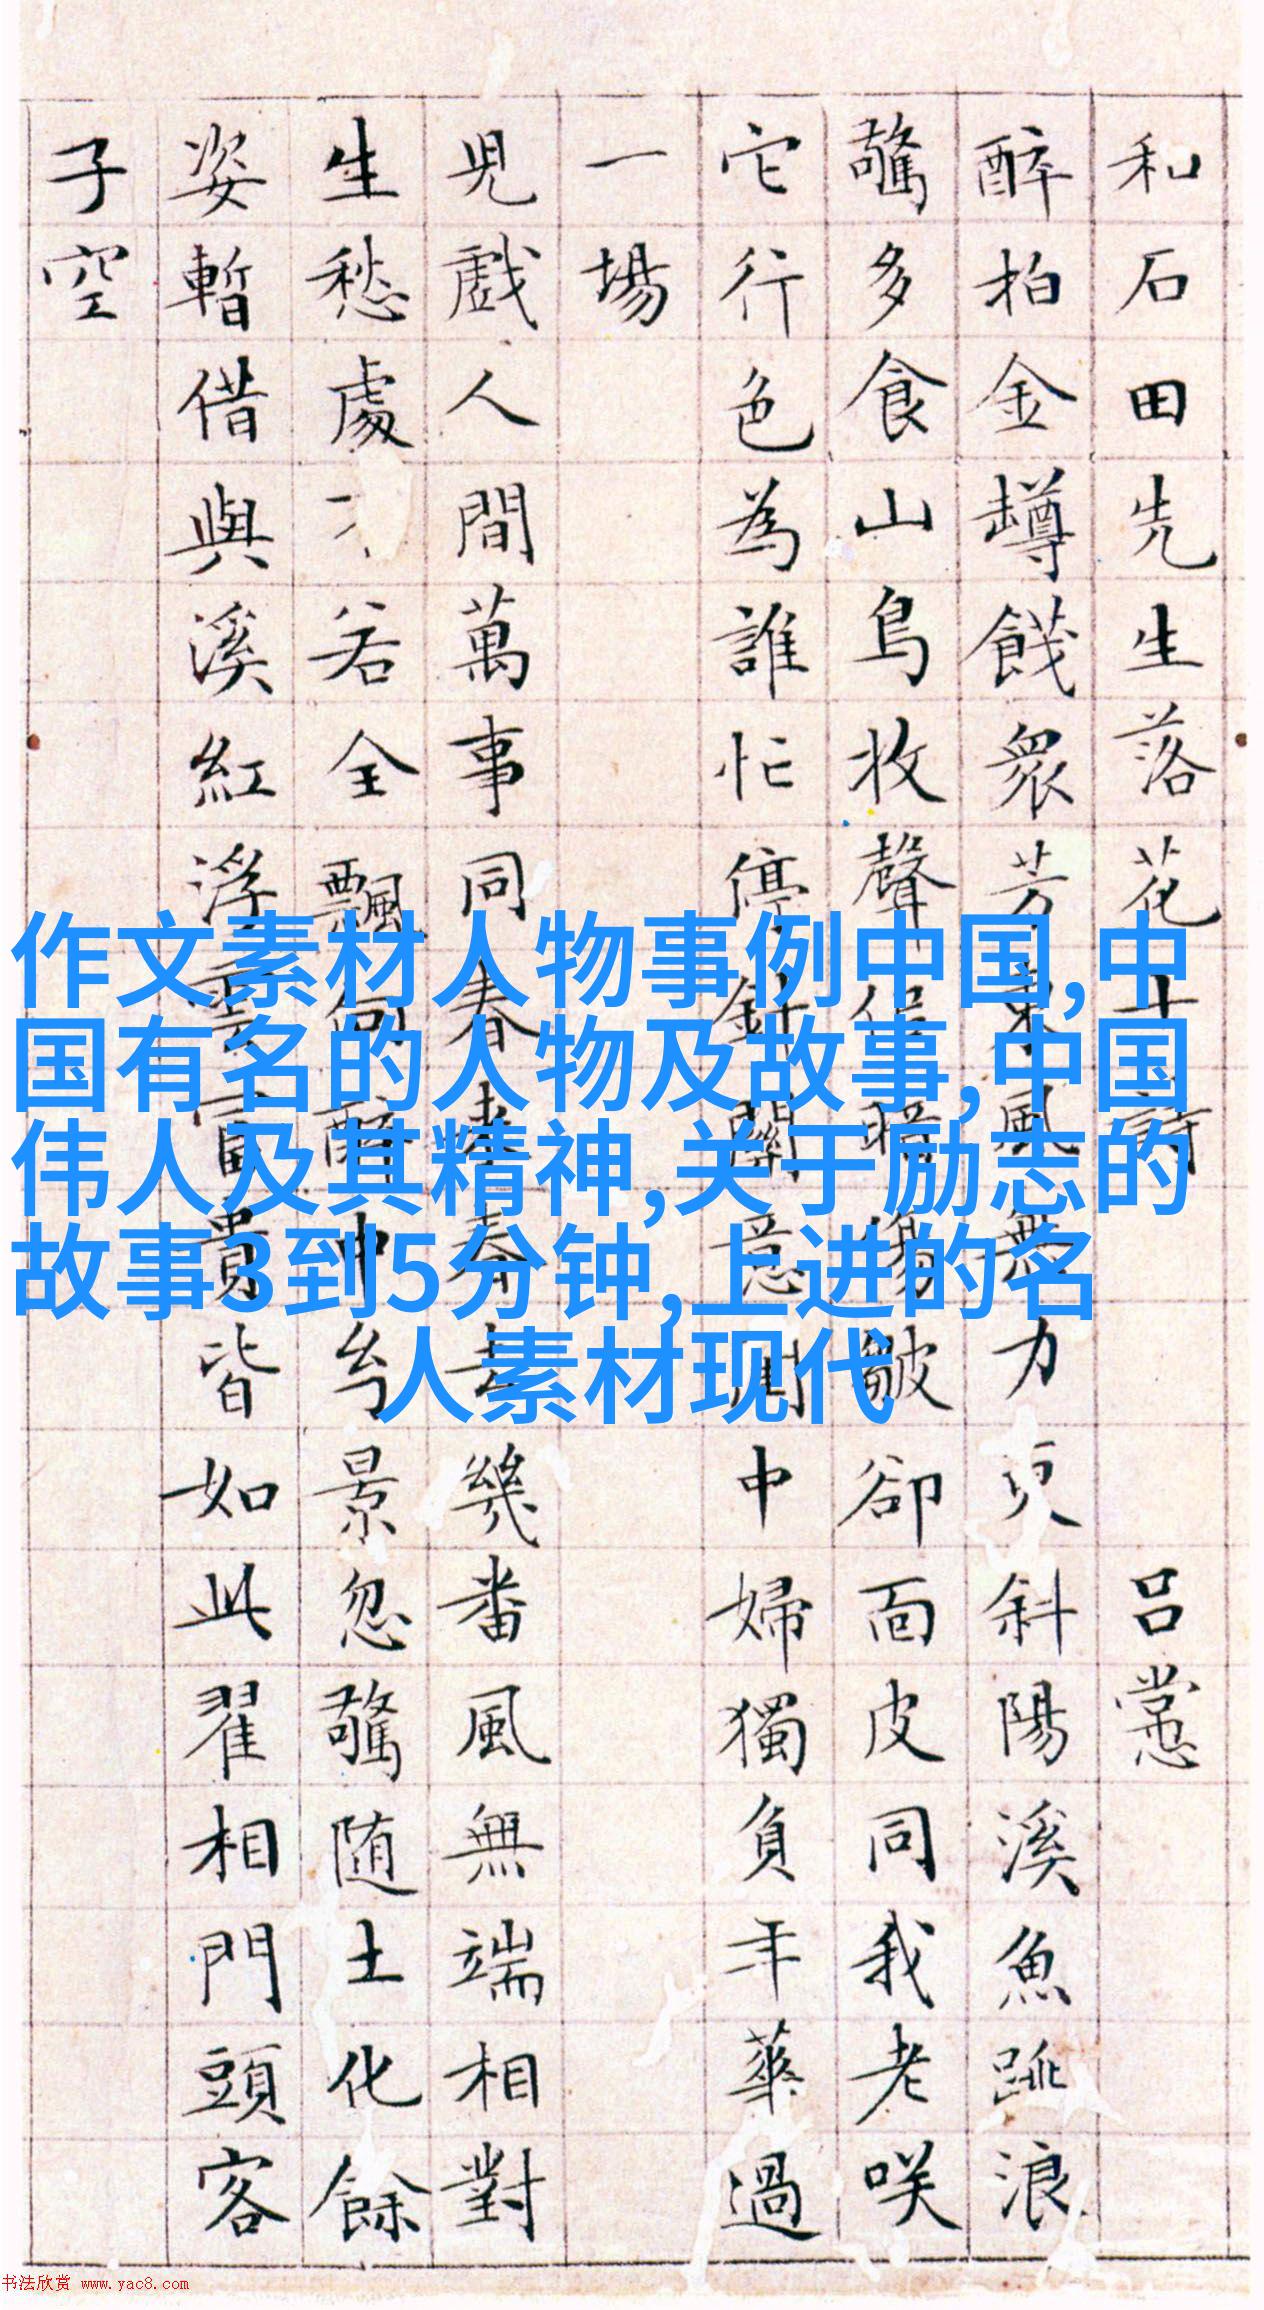 和石田先生落花十詩 呂㦂
醉拍金罇餞衆芳東風無力更斜陽溪魚跳浪
驚多食山鳥收聲傷皺卻面皮同我老咲
它行色為誰忙停針關意閨中婦獨負年華過
一場
兒戲人間萬事同春來春去幾番風無端相對
生愁處若全飄向醉中景忽驚随土化餘
姿暫借與溪紅浮雲富貴皆如此翟相門頭客
子空
作文素材人物事例中国,中
国有名的人物及故事,中国
伟人及其精神,关于励志的
故事3到5分钟,上进的名
人素材现代
书法欣赏 www.yac8.com